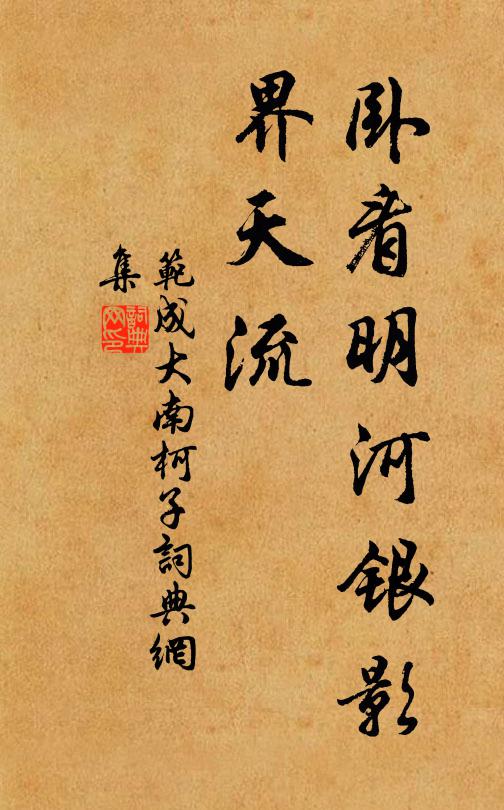 卧看明河银影
界天流
範成大南柯子詞典網
集
詞典网印